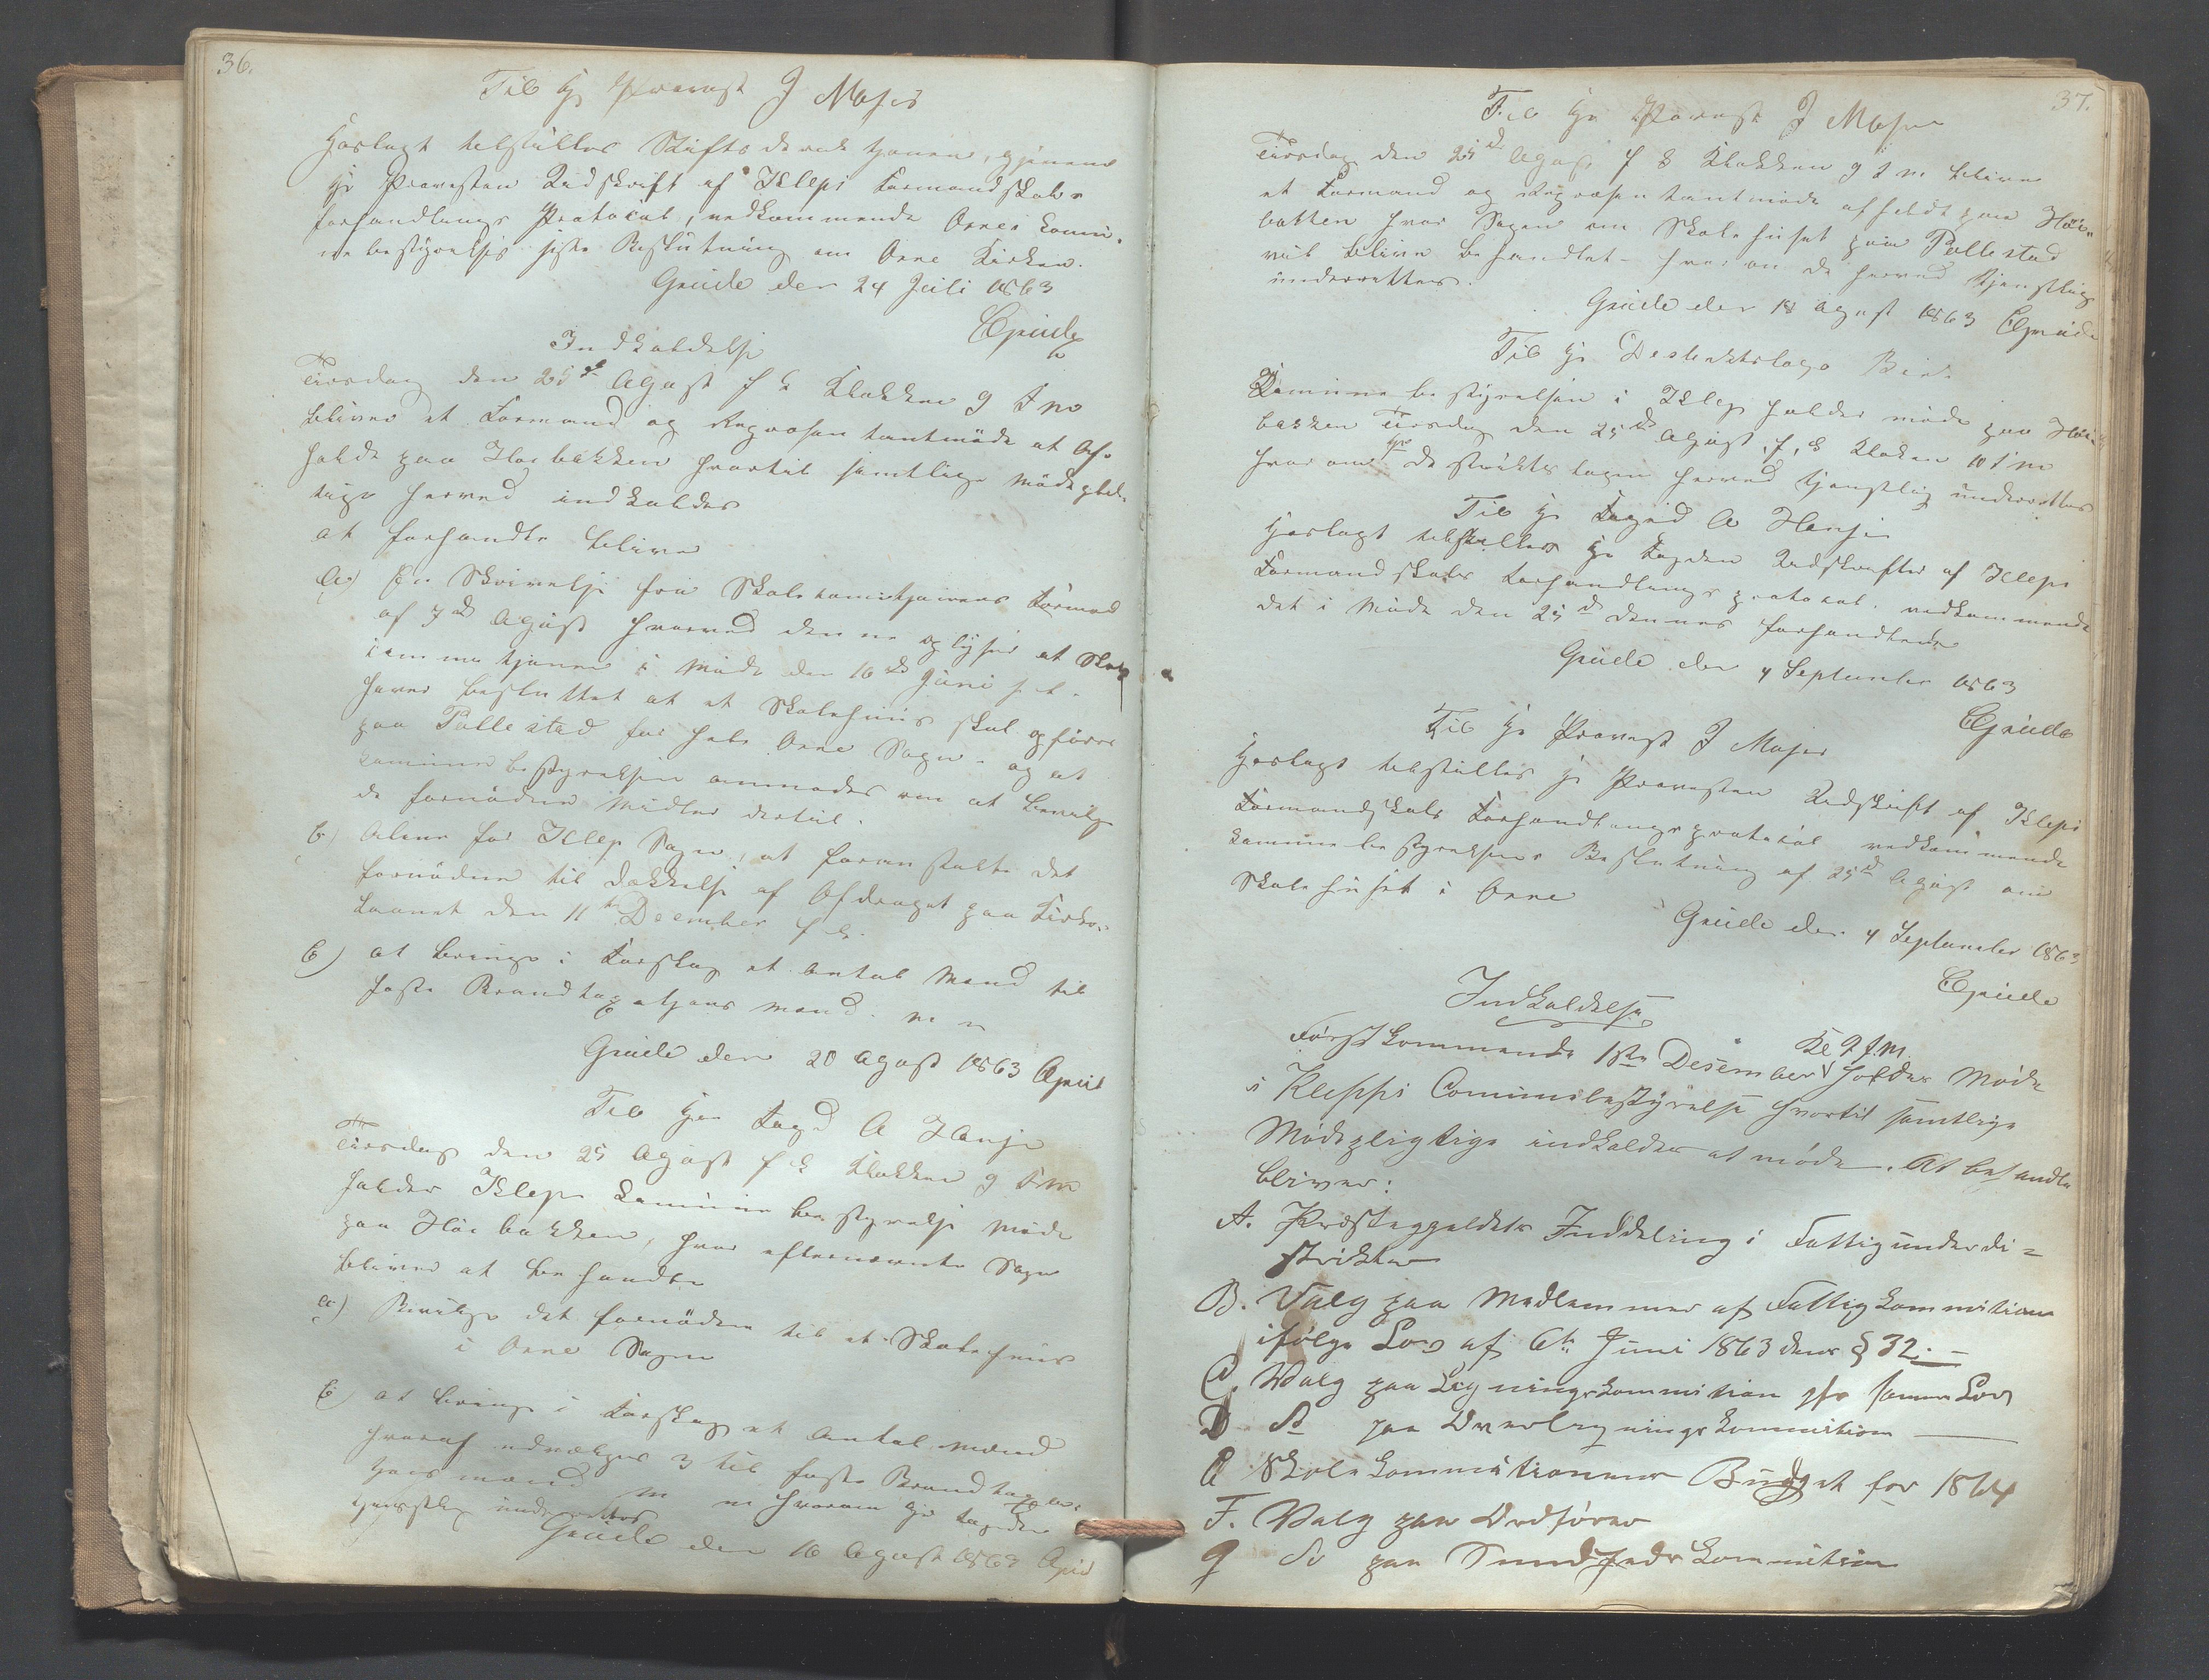 36.
Til Hr Provst J Mases
Hoslagt tilstilles Stifts derecksjonen, gjenem
Hr Provsten Udskrift af Kleps Formandskabs
forhandlings Protocol, vedkommende Orres Komu-
ne bestyrelses siste Beslutning om Orre Kirken.
Grude den 24 Juli 1863
CGrude
Indkaldelse
Tirsdag den 25de Agust f k Klokken 9 Fm
bliver et Formand og Repræsentantmöde at Af-
holde paa Høibakken hvortil samtlige mödepleg-
tige herved indkaldes
at forhandle blive
a) En Skrivelse fra Skolekomisjonens Formand
af 7de Agust hvorved denne oplyser at Skole
komisjonen i Möde den 16de Juni f. l.
haver besluttet at et Skolehuus skal opföres
paa Pollestad for hele Orre Sogn - og at
komunebestyrelsen anmodes om at bevilge
de fornödne Midler dertil.
b) Alene for Klep Sogn, at foranstalte det
fornödne til dækkelse af Afdraget paa Kirke-
laanet den 11te December f k.
c) at bringe i Forslag et Antal Mænd til
faste Brandtaxasjons mænd. m m
Grude den 20 Agust 1863 CGrude
Til Hr Foged A Hansen
Tirsdag den 25 Agust f k Klokken 9 Fm
holder Klep Komunebestyrelse Möde
paa Höibakken, hvor efternævnte Sager
bliver at behandle
a) Bevilge det fornödne til et Skolehuus
i Orre Sogn
b) at bringe i Forslag et Antal mænd
hvoraf udvælges 3 til faste Brandtaxa-
sjons mænd m m hvorom Hr Fogden
tjenstlig underrettes
Grude den 18 Agust 1863 CGrude
37.
Til Hr Provst J Mases
Tirsdag den 25de Agust f k Klokken 9 Fm blive
et Formand og Repræsentantmöde afholdt paa Höi-
bakken hvor Sagen om Skolehuset paa Pollestad
vil blive behandlet - hvorom De herved tjenstligt
underrettes.
Grude den 18 Agust 1863 CGrude
Til Hr Destrektslæge
Komunebestyrelsen i Klep holder möde paa Höi-
bakken Tirsdag den 25de Agust f, k Kloken 10 Fm
hvorom Hr Destriktslægen herved tjenstlig underrettes
Til Hr Foged A Hansen
Hoslagt tilstilles Hr Fogden Udskrifter af Kleps
Formandskabs Forhandlings protocol. vedkommende
det i Möde den 25de dennes forhandlede
Grude den 4 September 1863
CGrude
Til Hr Provst J Mases
Hoslagt tilstilles Hr Provsten Udskrift af Kleps
Formandskabs Forhandlings protocol vedkommende
Komunebestyrelsens Beslutning af 25de Agust om
Skolehuset i Orre
Grude den 4 September 1863
CGrude
Indkaldelse
Kl 9 f.m.
Førstkommende 1ste Desember holdes Møde
i Klepps Comunebestyrelse hvortil samtlige
Mødepligtige indkaldes at møde. At behandle
bliver:
A. Præstegjeldets Inddeling i Fattigunderdi=
strikter
B. Valg paa Medlemmer af Fattigkommisionen
ifølge Lov af 6te Juni 1863 dens § 32. -
C. Valg paa Ligningskommision jfr samme Lov
D do paa Overligningskommision
E Skolekommisionens Budget for 1864
F. Valg paa Ordfører
G do paa Sundhedskommision